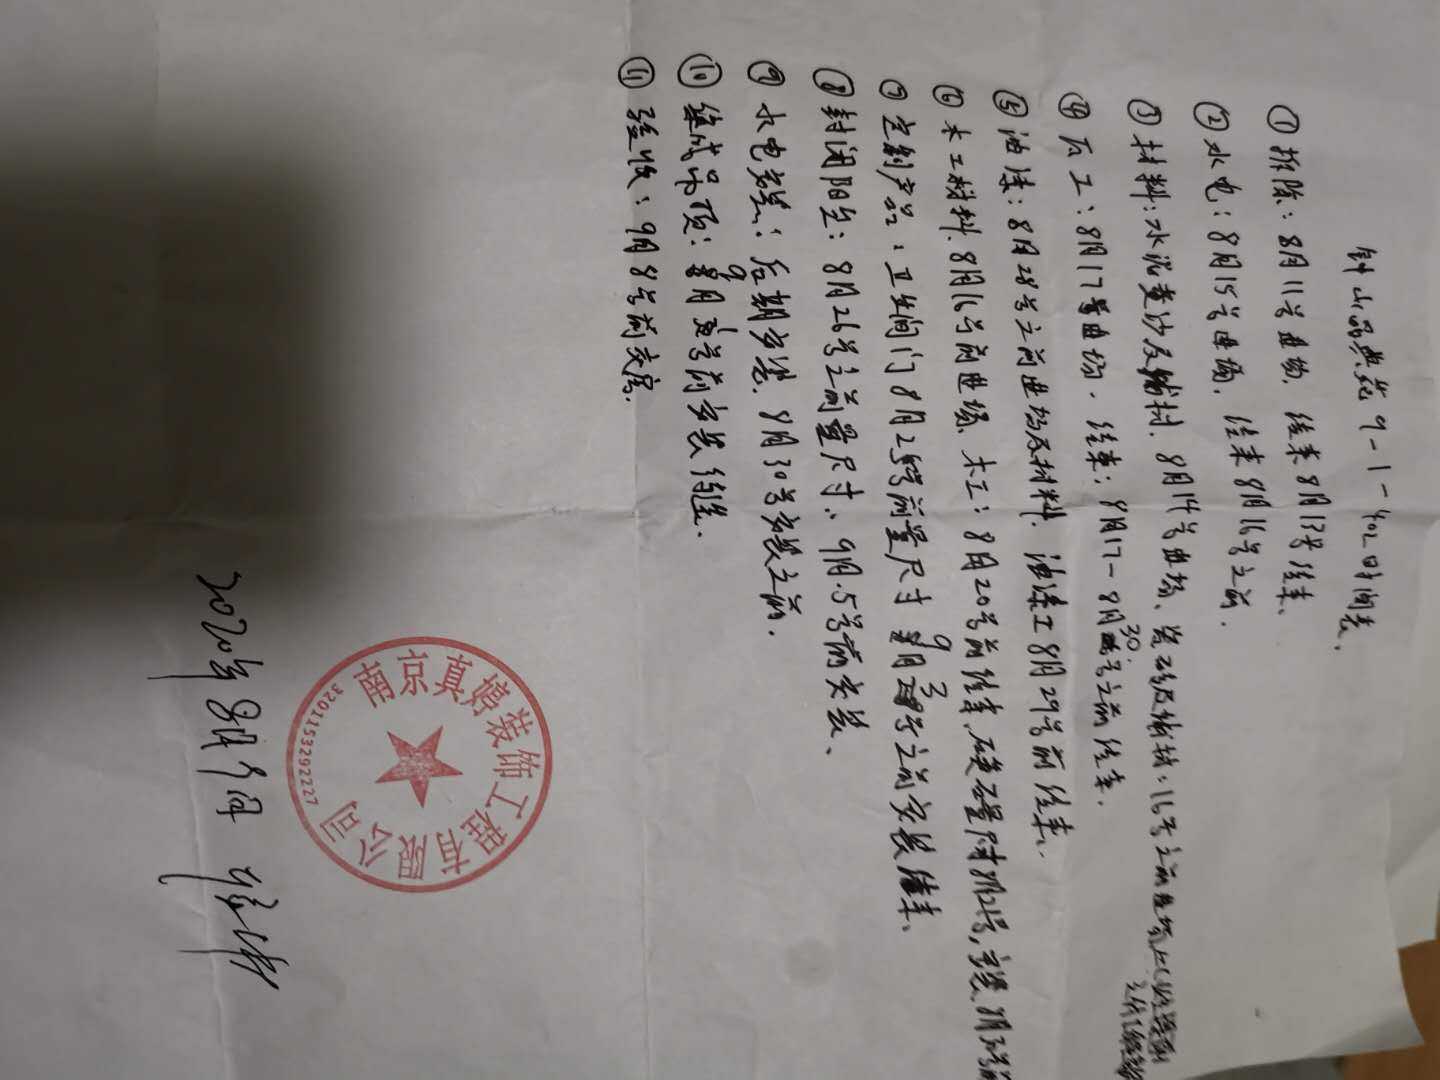 钟山品典苑9-1-402时间表.
① 拆除：8月11号进场. 结束8月13号结束.
② 水电：8月15号进场. 结束8月16号之前.
③ 材料：水泥黄沙及辅材. 8月14号进场、瓷砖及辅材：16号之前进场
④ 瓦工：8月17号进场. 结束：8月17-8月30号之前结束.
⑤ 油漆：8月28号之前进场及材料. 油漆工8月29号前结束.
⑥ 木工材料.8月16号前进场、木工：8月20号前结束.
⑦ 定制产品：卫生间门8月25号前量尺寸 9月3号之前安装结束.
⑧ 封闭阳台：8月26号之前量尺寸、9月.5号前安装.
⑨ 水电安装：后期安装.8月30号安装之前.
⑩ 集成吊顶：9月1号前安装
⑪ 验收：9月8号前交房.
南京真婷装饰工程有限公司
3201153292227
2020年8月9日